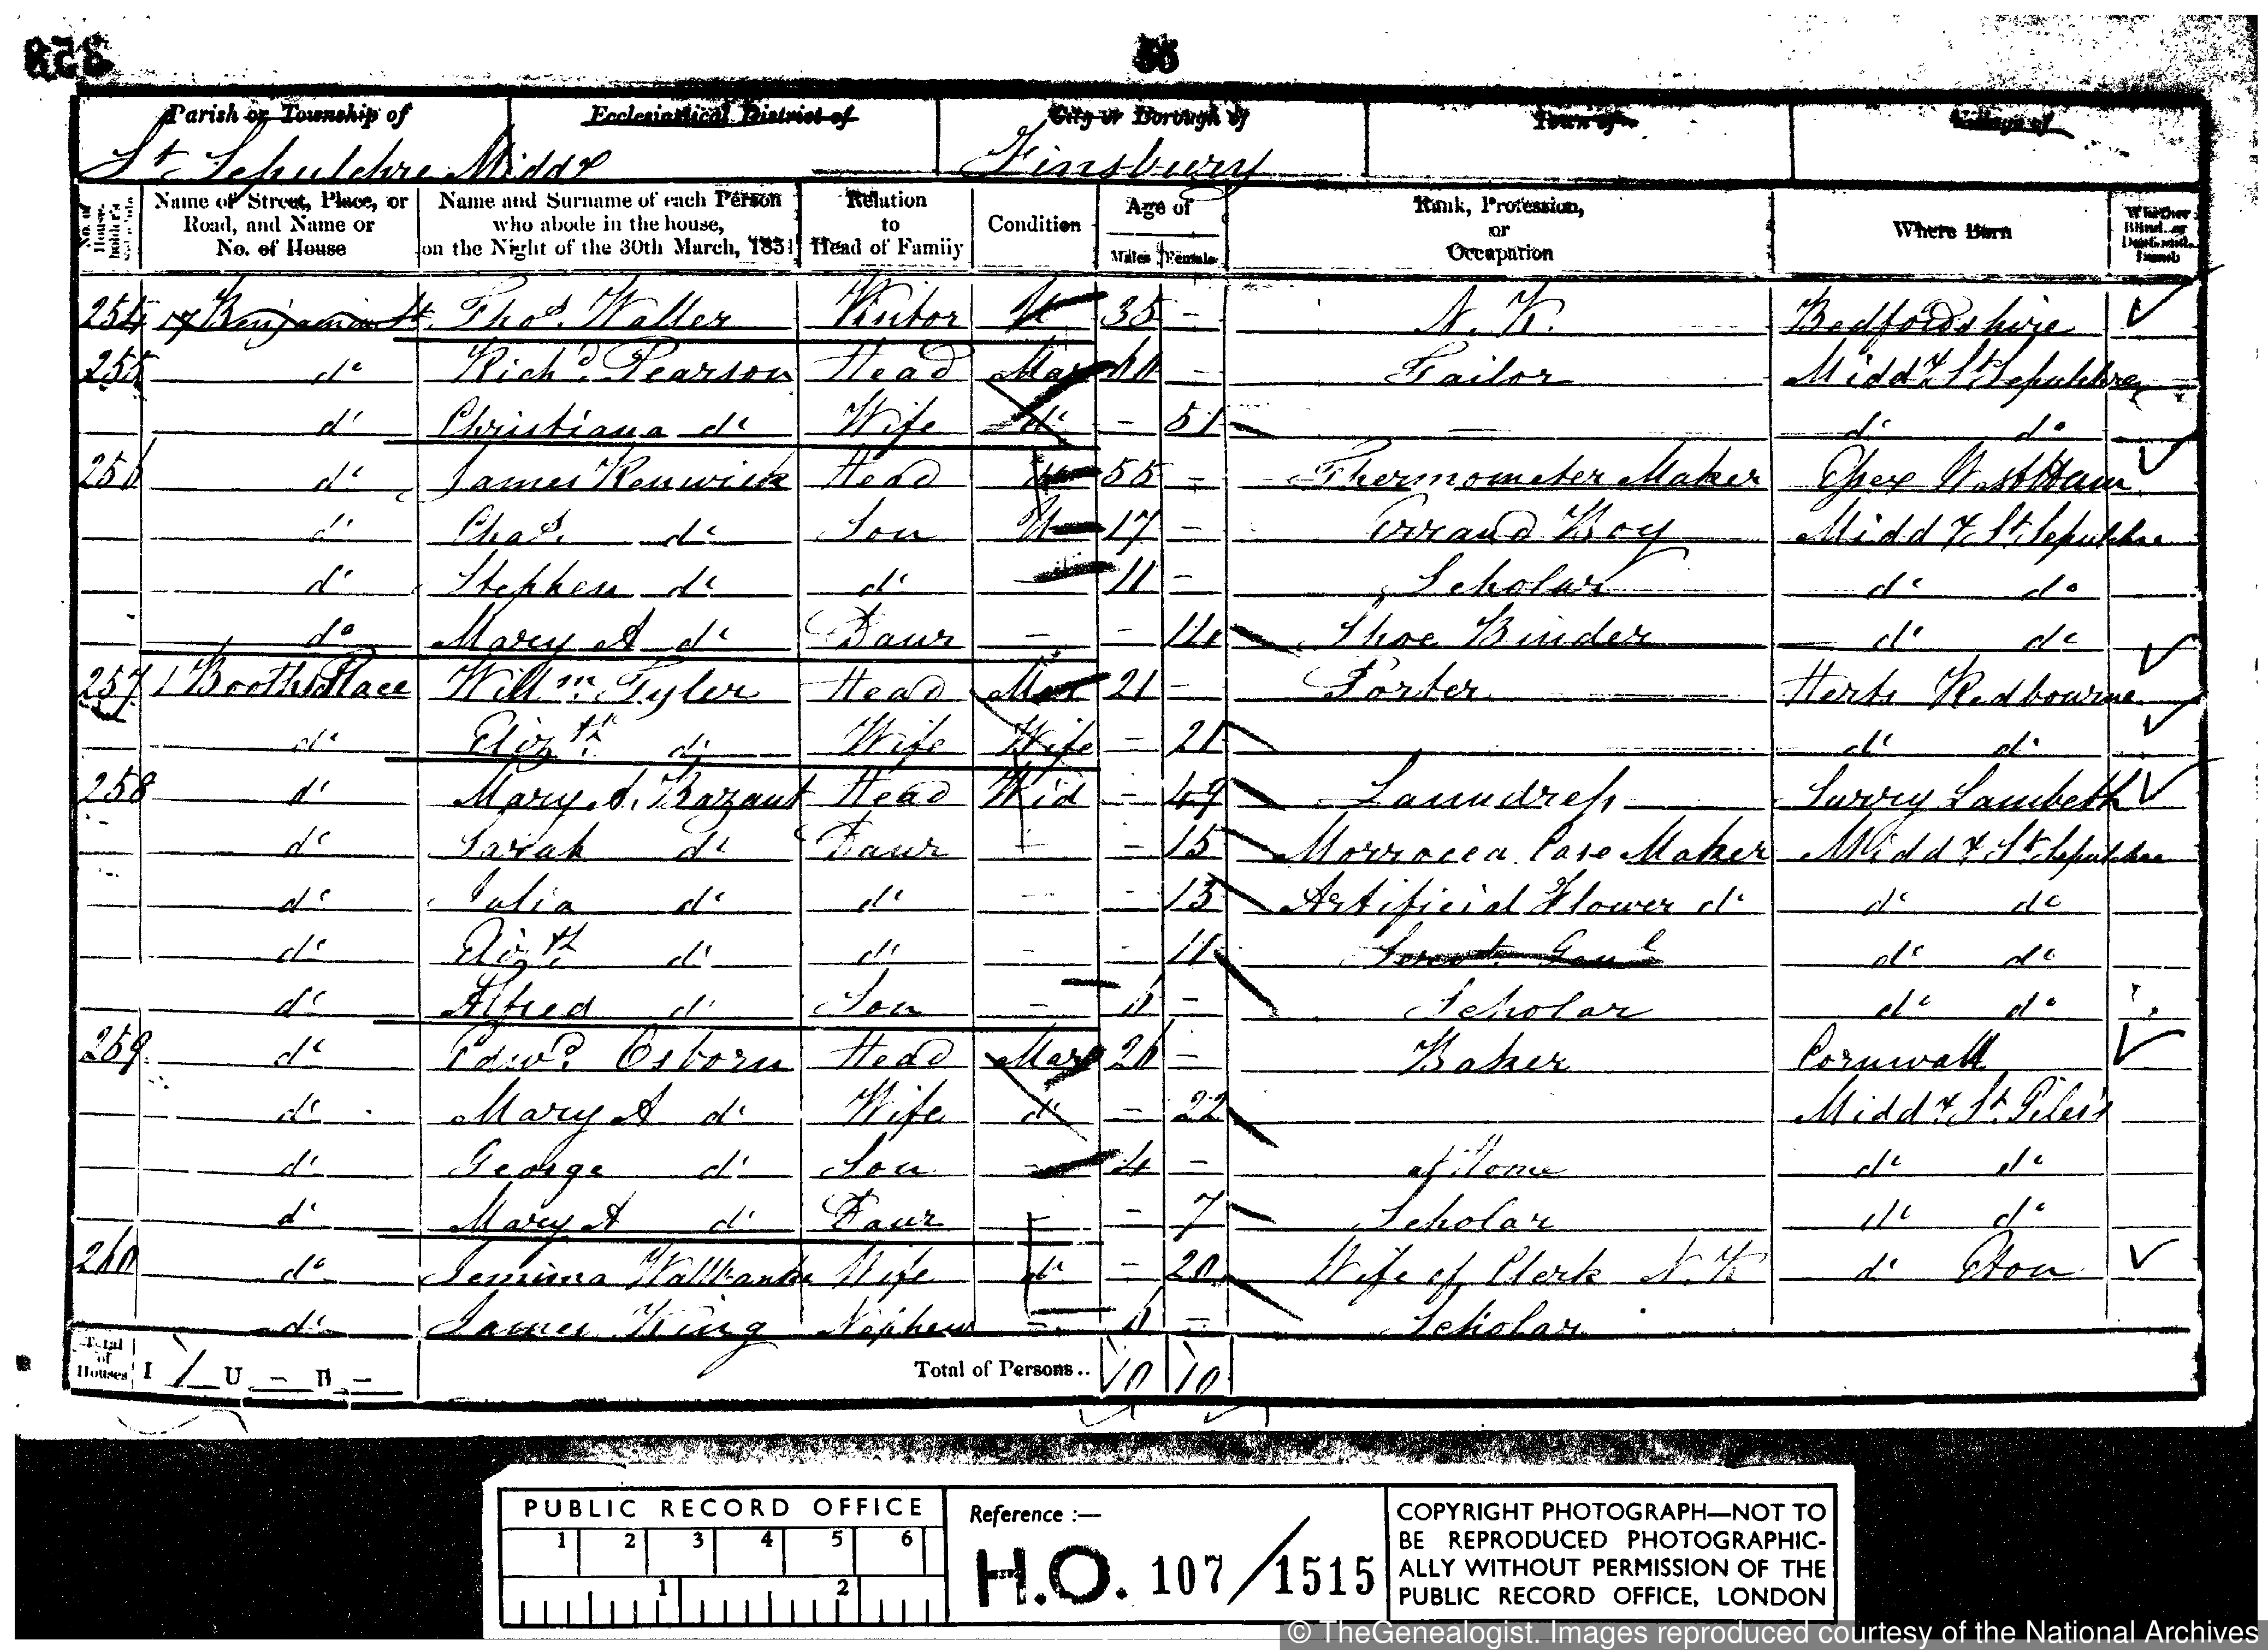 55
Parish or Township of Ecclesiastical District of City or Borough of Town of Village of
St Sepulchre Middx Finsbury
No. of House-holder's Name of Street, Place, or Road, and Name or No. of House Name and Surname of each Person who abode in the house, on the Night of the 30th March, 1851 Relation to Head of Family Condition Age of Males Females Rank, Profession, or Occupation Where Born Whether Blind, or Deaf and Dumb
254 17 Benjamin St Thos. Waller Visitor U 35 - N. K. Bedfordshire
255 do Richd. Pearson Head Mar - Tailor Middx St Sepulchre
do Christiana do Wife do - 51 do do
256 do James Renwick Head 55 - Thermometer Maker Essex West Ham
do Chas. do Son U 17 - Errand Boy Middx St Sepulchre
do Stephen do do - 11 - Scholar do do
do Mary A do Daur - - 14 Shoe Binder do do
257 1 Booths Place Willm. Tyler Head Mar 21 - Porter Herts Redbourne
do Elizth. do Wife Wife - 21 do do
258 do Mary A. Bazant Head Wid - 49 Laundress Surry Lambeth
do Sarah do Daur - - 15 Morrocca Case Maker Middx St Sepulchre
do Julia do do - - 13 Artificial Flower do do do
do Elizth. do do - - 11 Servt. Genl do do
do Alfred do Son - 6 - Scholar do do
259 do Edwd. Osborn Head Mar 26 - Baker Cornwall
do Mary A do Wife do - 22 Middx St. Giles's
do George do Son - 4 - at Home do do
do Mary A do Daur - 7 Scholar do do
260 do Jemima Wallbanke Wife do - 20 Wife of Clerk N. K do Eton
do James King Nephew - 6 - Scholar
Total of Houses I 1 U - B - Total of Persons.. 10 10
PUBLIC RECORD OFFICE
1 2 3 4 5 6
1 2
Reference :—
H.O. 107/1515
COPYRIGHT PHOTOGRAPH—NOT TO
BE REPRODUCED PHOTOGRAPHIC-
ALLY WITHOUT PERMISSION OF THE
PUBLIC RECORD OFFICE, LONDON
© TheGenealogist. Images reproduced courtesy of the National Archives